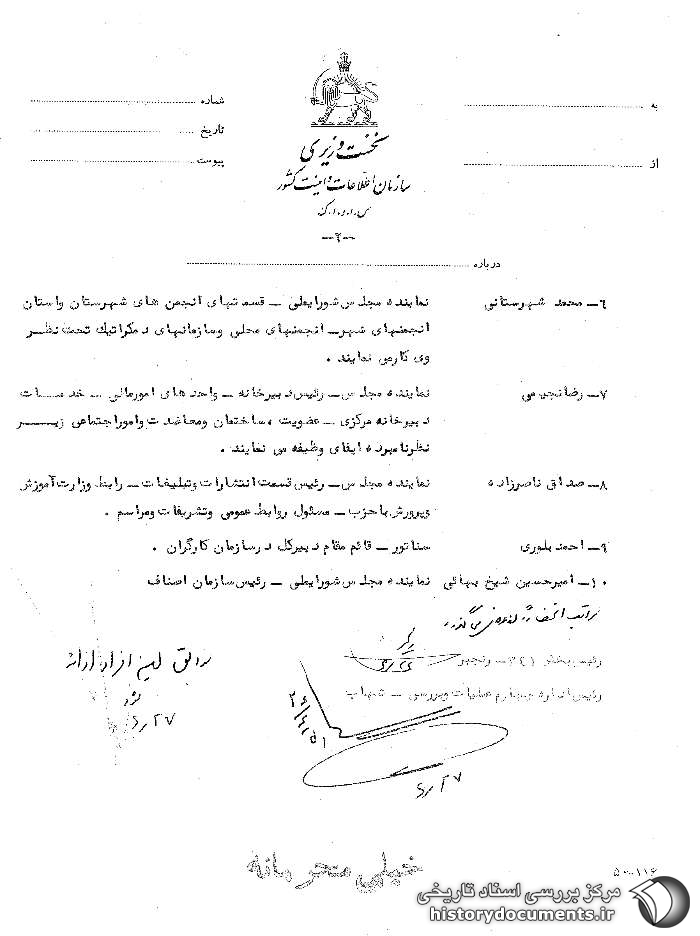 شماره
تاریخ
پیوست
به
از
نخست وزیری
سازمان اطلاعات و امنیت کشور
س.ا.و.ا.ک
-۲-
درباره
۶- محمد شهرستانی نماینده مجلس شورایملی - قسمتهای انجمن های شهرستان واستان
انجمنهای شهر - انجمنهای محلی وسازمانهای دمکراتیک تحت نظر
وی کار می نمایند .
۷- رضا نجیمی نماینده مجلس - رئیس دبیرخانه - واحدهای امورمالی - خدمات
دبیرخانه مرکزی - عضویت ، ساختمان ومعاضدت وامور اجتماعی زیر
نظرنامبرده ایفای وظیفه می نمایند .
۸- صداق ناصرزاده نماینده مجلس - رئیس قسمت انتشارات وتبلیغات - رابط وزارت آموزش
وپرورش باحزب - مسئول روابط عمومی وتشریفات ومراسم .
۹- احمد بلوری سناتور - قائم مقام دبیرکل درسازمان کارگران .
۱۰- امیرحسین شیخ بهائی نماینده مجلس شورایملی - رئیس سازمان اصناف
رئیس بخش ۳۴۱ - رنجبر
رئیس اداره چهارم عملیات وبررسی - شهاب
۲۶/۴/۵۱
۴/۲۷
۴/۲۷
خیلی محرمانه
۵۰-۱۱۶
مرکز بررسی اسناد تاریخی
historydocuments.ir